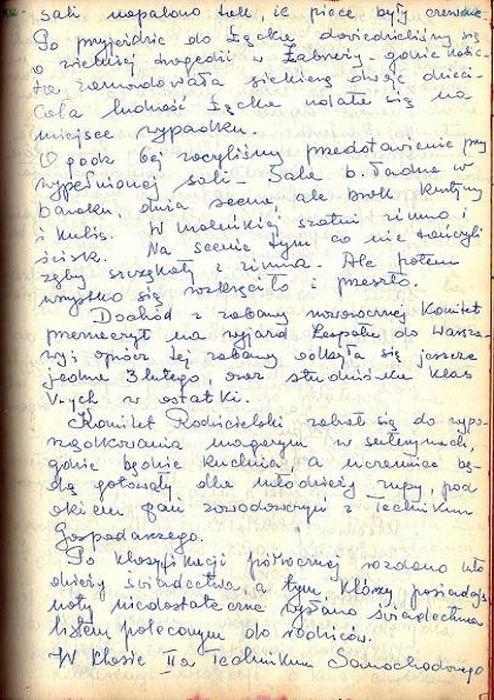 sali napalono tak, że piece były czerwone.
Po przyjeździe do Łącka dowiedzieliśmy się
o wielkiej tragedii w Zabrzeży - gdzie matka
zamordowała siekierą dwoje dzieci.
Cała ludność Łącka udała się na
miejsce wypadku.
O godz 6ej zaczęliśmy przedstawienie przy
wypełnionej sali - Sala b. ładna w
baraku, duża scena, ale brak kurtyny
i kulis. W maleńkiej szatni zimno i
ścisk. Na scenie tym co nie tańczyli
zęby szczękały z zimna. Ale potem
wszystko się rozkręciło i przeszło.
Dochód z zabawy noworocznej Komitet
przeznaczył na wyjazd Zespołu do Warsza-
wy; oprócz tej zabawy odbyła się jeszcze
jedna 3 lutego, oraz studniówka klas
V-ych w ostatki.
Komitet Rodzicielski zabrał się do upo-
rządkowania magazynu w suterynach,
gdzie będzie kuchnia, a uczennice bę-
dą gotowały dla młodzieży zupy, pod
okiem pań zawodowych z Technikum
Gospodarczego.
Po klasyfikacji półrocznej rozdano mło
dzieży świadectwa, a tym, którzy posiadają
noty niedostateczne wysłano świadectwa
listem poleconym do rodziców.
W klasie II a Technikum Samochodowego